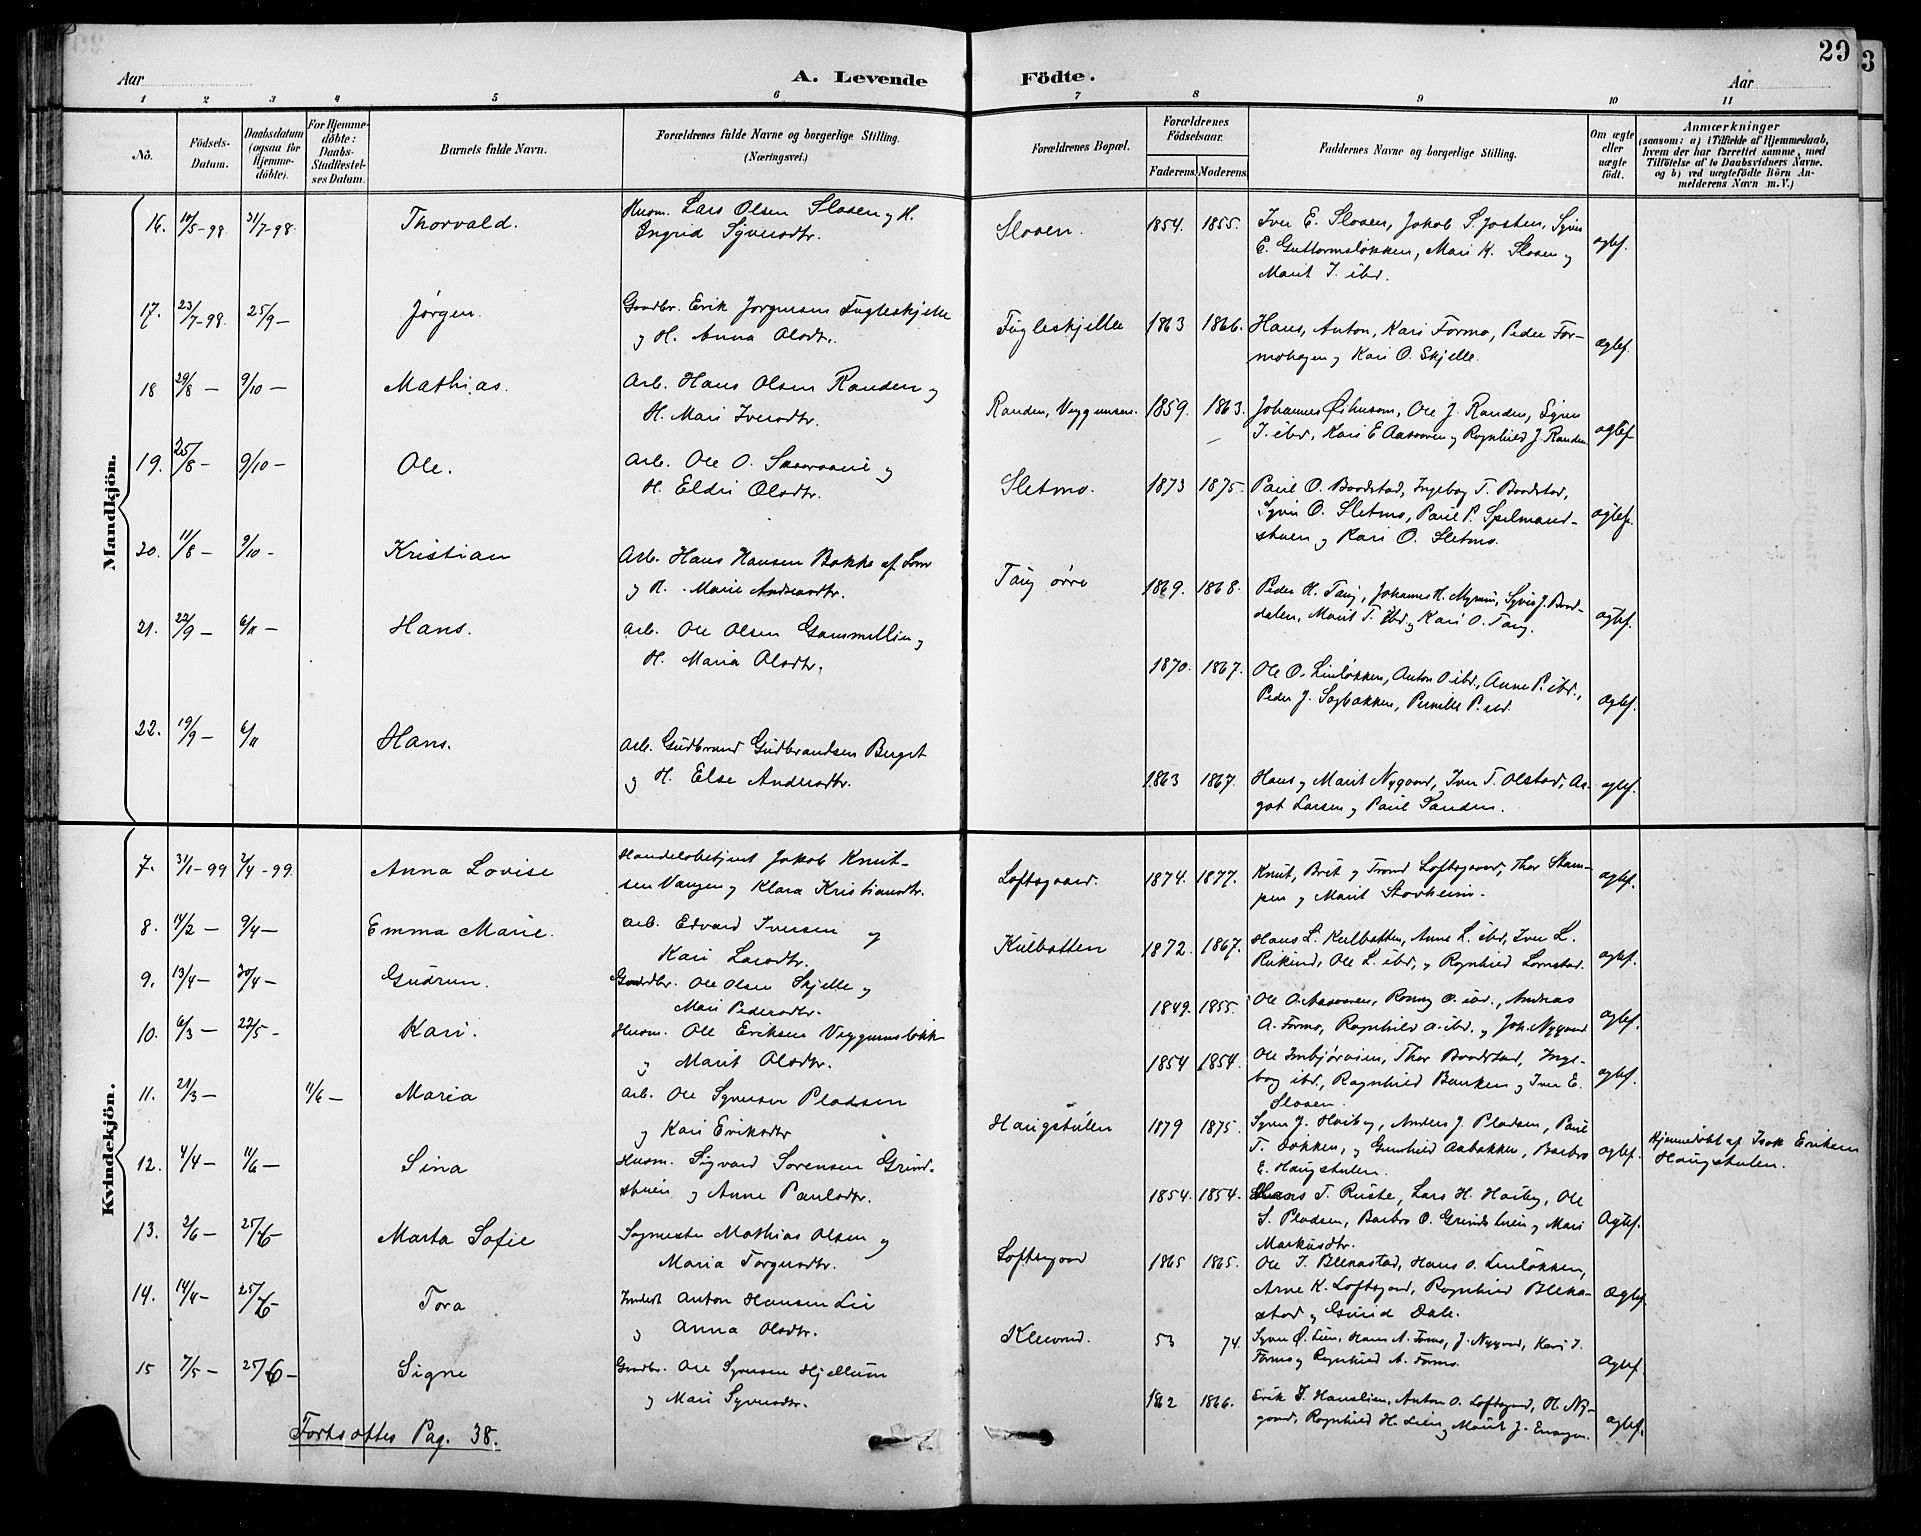 29
3
Aar
A. Levende Födte.
Aar
1 2 3 4 5 6 7 8 9 10 11
No.
Födsels-Datum.
Daabsdatum (ogsaa for Hjemme-döbte).
For Hjemme-döbte: Daabs-Stadfæstel-ses Datum.
Barnets fulde Navn.
Forældrenes fulde Navne og borgerlige Stilling.
(Næringsvei.)
Forældrenes Bopæl.
Forældrenes Födselsaar.
Faderens. Moderens.
Faddernes Navne og borgerlige Stilling.
Om ægte eller uægte födt.
Anmærkninger
(saasom: a) i Tilfælde af Hjemmedaab, hvem der har forrettet samme, med Tilföielse af to Daabsvidners Navne. og b) ved uægtefödte Börn An-melderens Navn m. V.)
Mandkjön.
16. 10/5-98 31/7-98. Thorvald. Husm. Lars Olsen Sloaen og H.
Ingrid Syversdtr.
Sloaen. 1854. 1855. Iver E. Sloaen, Jakob S. Josten, Syver
E. Guttormsløkken, Mari K. Sloaen og
Marit I. ibd.
ægtef.
17. 23/7-98. 25/9- Jørgen. Gaardbr. Erik Jørgensen Fugleskjelle
og H. Anna Olsdtr.
Fugleskjelle 1863 1866. Hans, Anton, Kari Formo, Peder For-
mohagen og Kari O. Skjelle.
ægtef.
18 29/8- 9/10- Mathias. Arb. Hans Olsen Randen og
H. Mari Iversdtr.
Randen, 1859. 1863. Johannes Øihusom, Ole J. Randen, Syver
I. ibd, Kari E Aasaaren og Ragnhild J. Randen
ægtef
19. 25/8- 9/10- Ole. Arb. Ole O. og
H. Eldri Olsdtr.
Sletmo. 1873 1875. Paul O. Baardstad, Ingebog T. Baardstad,
Syver O. Sletmo, Paul P. Spelmand-
stuen og Kari O. Sletmo.
ægtef.
20. 11/8- 9/10- Kristian Arb. Hans Hansen Bakke af Lom
og H. Marie Andreasdtr.
Taug øvre 1869. 1868. Peder H. Taug, Johannes H. Myrmo, Syver J.
dalen, Marit T. ibd og Kari O. Taug.
ægtef.
21. 22/9- 6/11- Hans. Arb. Ole Olsen Gammellien og
H. Maria Olsdtr.
1870. 1867. Ole O. Linløkken, Anton O ibd., Anne P. ibd.,
Peder J. Sagbakken, Pernille P. ibd.
ægtef.
22. 19/9- 6/11 Hans. Arb. Gudbrand Gudbrandsen Berget
og H. Else Andersdtr.
1863 1867. Hans og Marit Nygaard, Iver T. Olstad, Aa-
got Larsen og Paul Sanden.
ægtef.
Kvindekjön.
7. 31/1-99 2/4-99. Anna Lovise Handelsbetjent Jakob Knut-
sen Vangen og Klara Kristiansdtr.
Loftsgaard. 1874. 1877. Knut, Brit og Trond Loftsgaard, Thor Stam-
pen og Marit Storheim.
ægtef.
8. 14/2- 9/4- Emma Marie. Arb. Edvard Iversen og
Kari Larsdtr.
Kulbotten 1872. 1867. Hans L. Kulbotten, Anne L. ibd, Iver L.
Ole L. ibd, og Ragnhild Lomstad.
ægtef.
9. 13/4- 30/4- Gudrun. Gaardbr. Ole Olsen Skjelle og
Mari Pedersdtr.
1849. 1855. Ole O. Aasaaren, Ronny O. ibd., Andreas
A. Formo, Ragnhild A. ibd. og Joh. Nygaard
ægtef.
10. 6/3- 22/5- Kari. Husm. Ole Eriksen Veggumsløkk-
og Marit Olsdtr.
1854 1854. Ole Thor Baardstad, Inge-
bog ibd., Ragnhild Banken og Iver E.
Sloaen.
ægtef.
11. 21/3- 11/6- Maria Arb. Ole Syversen Pladsen
og Kari Eriksdtr
Haugstulen 1879 1875. Syver J. Haiby, Anders J. Pladsen, Paul
T. Løkken, og Gunhild Aabakken, Barbro
E. Haugstulen.
ægtef. Hjemmedøbt af Isak Eriksen
Haugstulen.
12. 4/4- 11/6- Sina Husm. Sigvard Sørensen Grind-
stuen og Anne Paulsdtr.
1854. 1854. Hans T. Ruste, Lars H. Haiby, Ole
S. Pladsen, Barbro O. Grindstuen og Mari
Markusdtr.
ægtef.
13. 2/6- 25/6- Marta Sofie Sogneprest Mathias Olsen og
Maria Torgersdtr.
Loftsgaard 1865 1865. Ole I. Blekastad, Hans O. Linløkken,
Arne K. Loftsgaard, Ragnhild Bleka-
stad og Gurid Dale.
ægtef.
14. 14/4- 25/6- Tora Inderst Anton Hansen Lie
og Anna Olsdtr.
Kleivrud. 53 74. Syver Ø. Lien, Hans A. Formo, J. Nygaard, Kari I.
Formo og Ragnhild A. Formo.
ægtef
15 7/5- 25/6- Signe Gaardbr. Ole Syversen Hjellum
og Mari Syversdtr.
1862 1866. Erik I. Hauslien, Anton O. Loftsgaard, H. Ny-
gaard, Ragnhild H. Lien og Marit J.
ægtef.
Fortsættes Pag. 38.